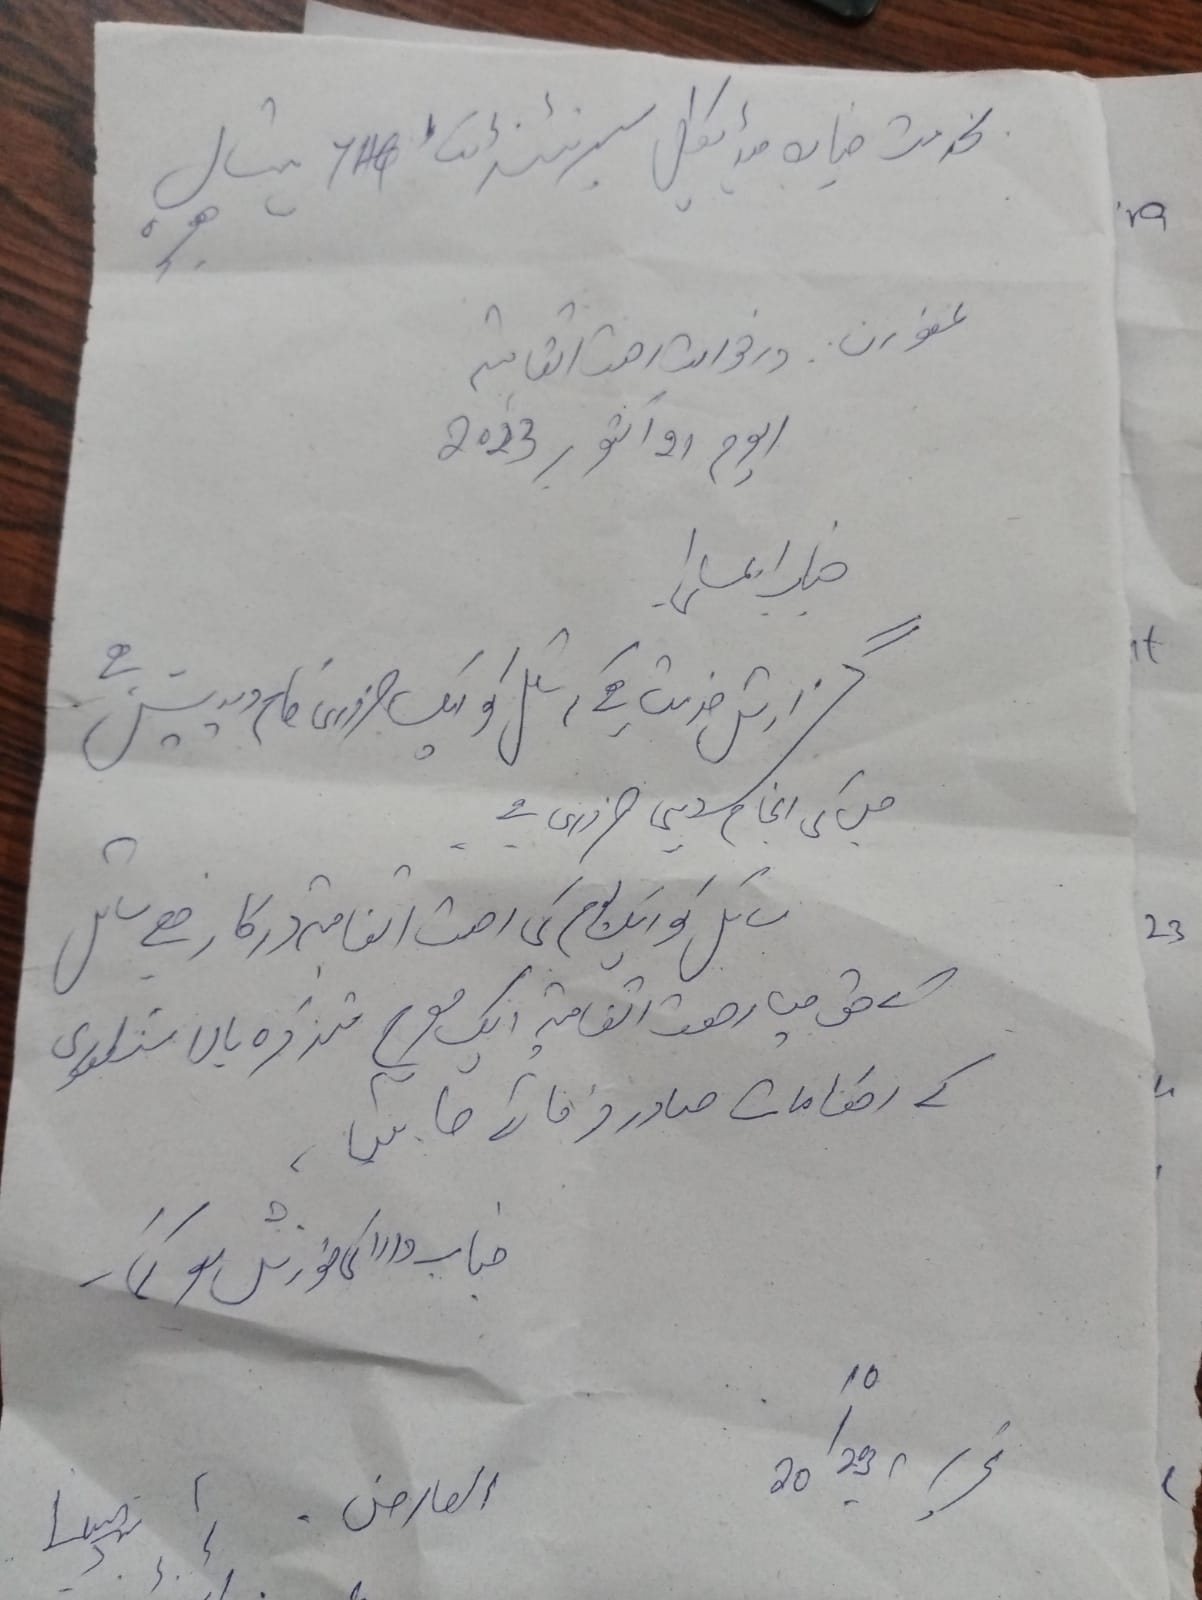 بخدمت جناب میڈیکل سپرنٹنڈنٹ THQ ہسپتال
ہجیرہ
عنوان :۔ درخواست رخصت اتفاقیہ
یوم 21 اکتوبر 2023
جناب عالی!
گزارش خدمت ہے کہ سائل کو ایک ضروری کام درپیش ہے
جس کی انجام دہی ضروری ہے ۔
سائل کو ایک یوم کی رخصت اتفاقیہ درکار ہے سائل
کے حق میں رخصت اتفاقیہ ایک یوم متذکرہ بالا منظوری
کے احکامات صادر فرمائے جائیں ،
جناب والا کی نوازش ہو گی ۔
10
تحریر
20
العارض ۔
29
23